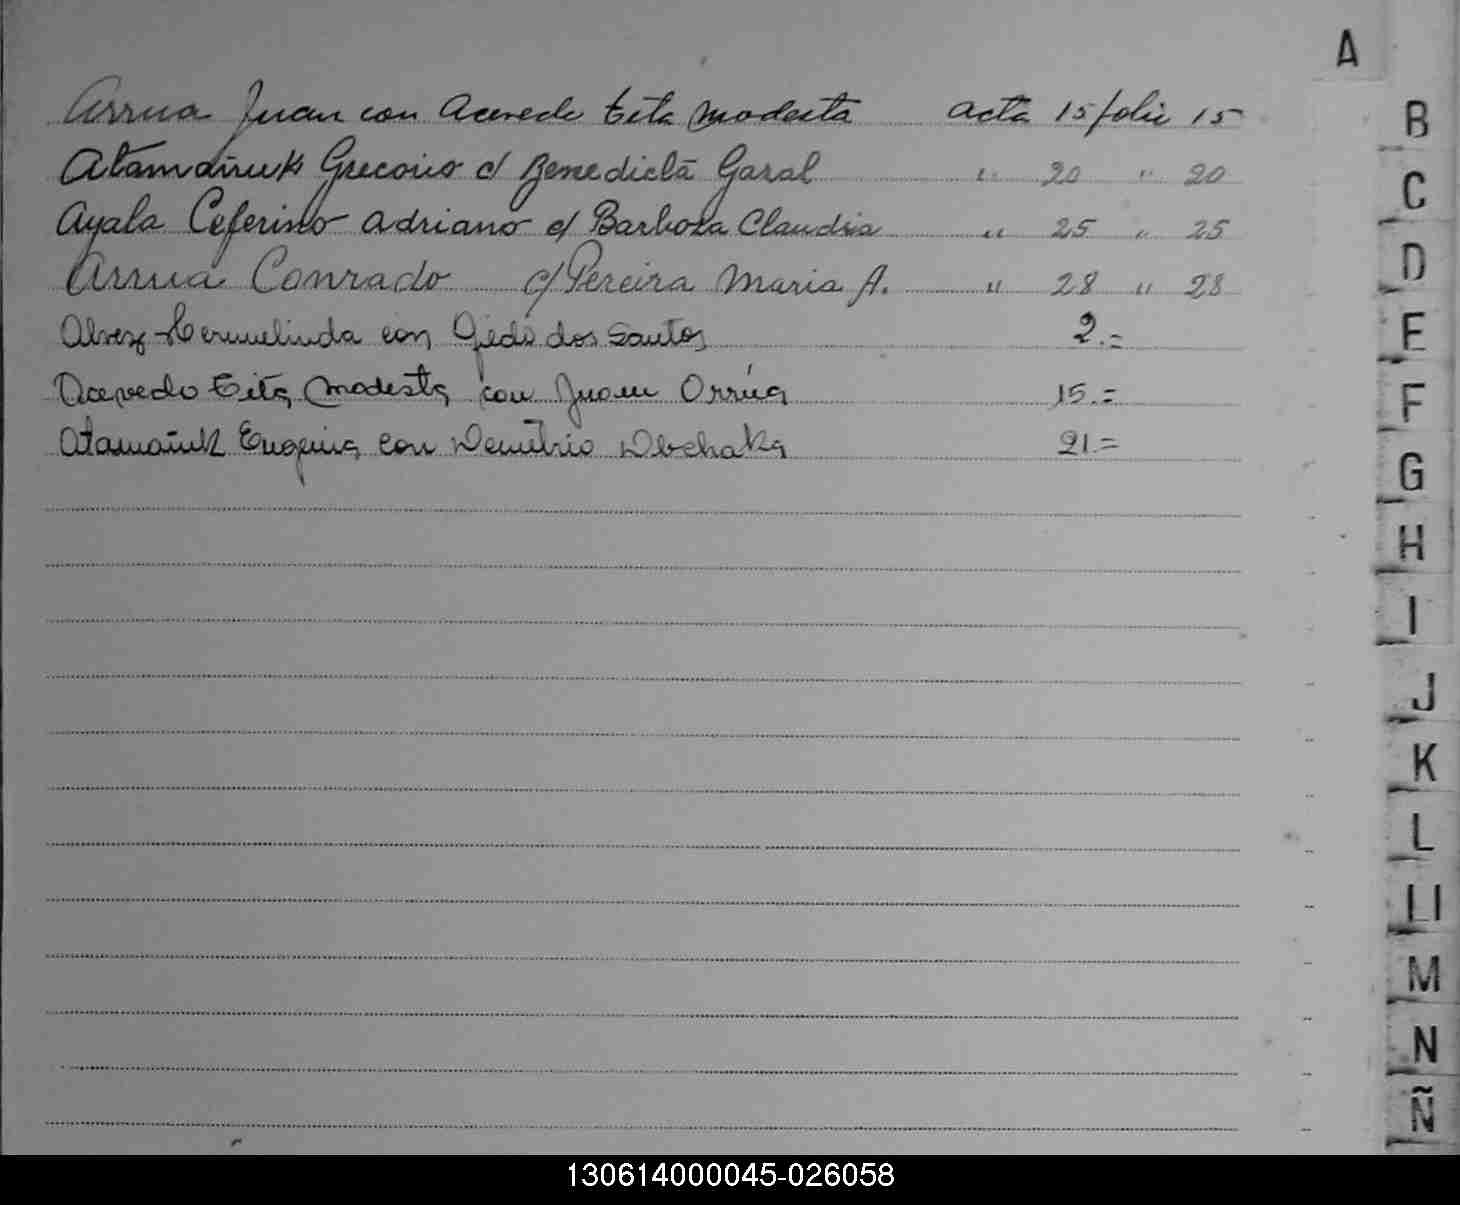 A
Arrua Juan con Acevedo Tita Modesta acta 15 folio 15
Atamañuk Grecorio c/ Benedicta Garal " 20 " 20
Ayala Ceferino Adriano c/ Barboza Claudia " 25 " 25
Arrua Conrado c/ Pereira Maria A. " 28 " 28
Alvez Hermelinda con dos Santos 2.=
Acevedo Tita Modesta con Juan Arrúa 15.=
Atamañuk Eugenia con Demetrio 21.=
B
C
D
E
F
G
H
I
J
K
L
Ll
M
N
Ñ
130614000045-026058